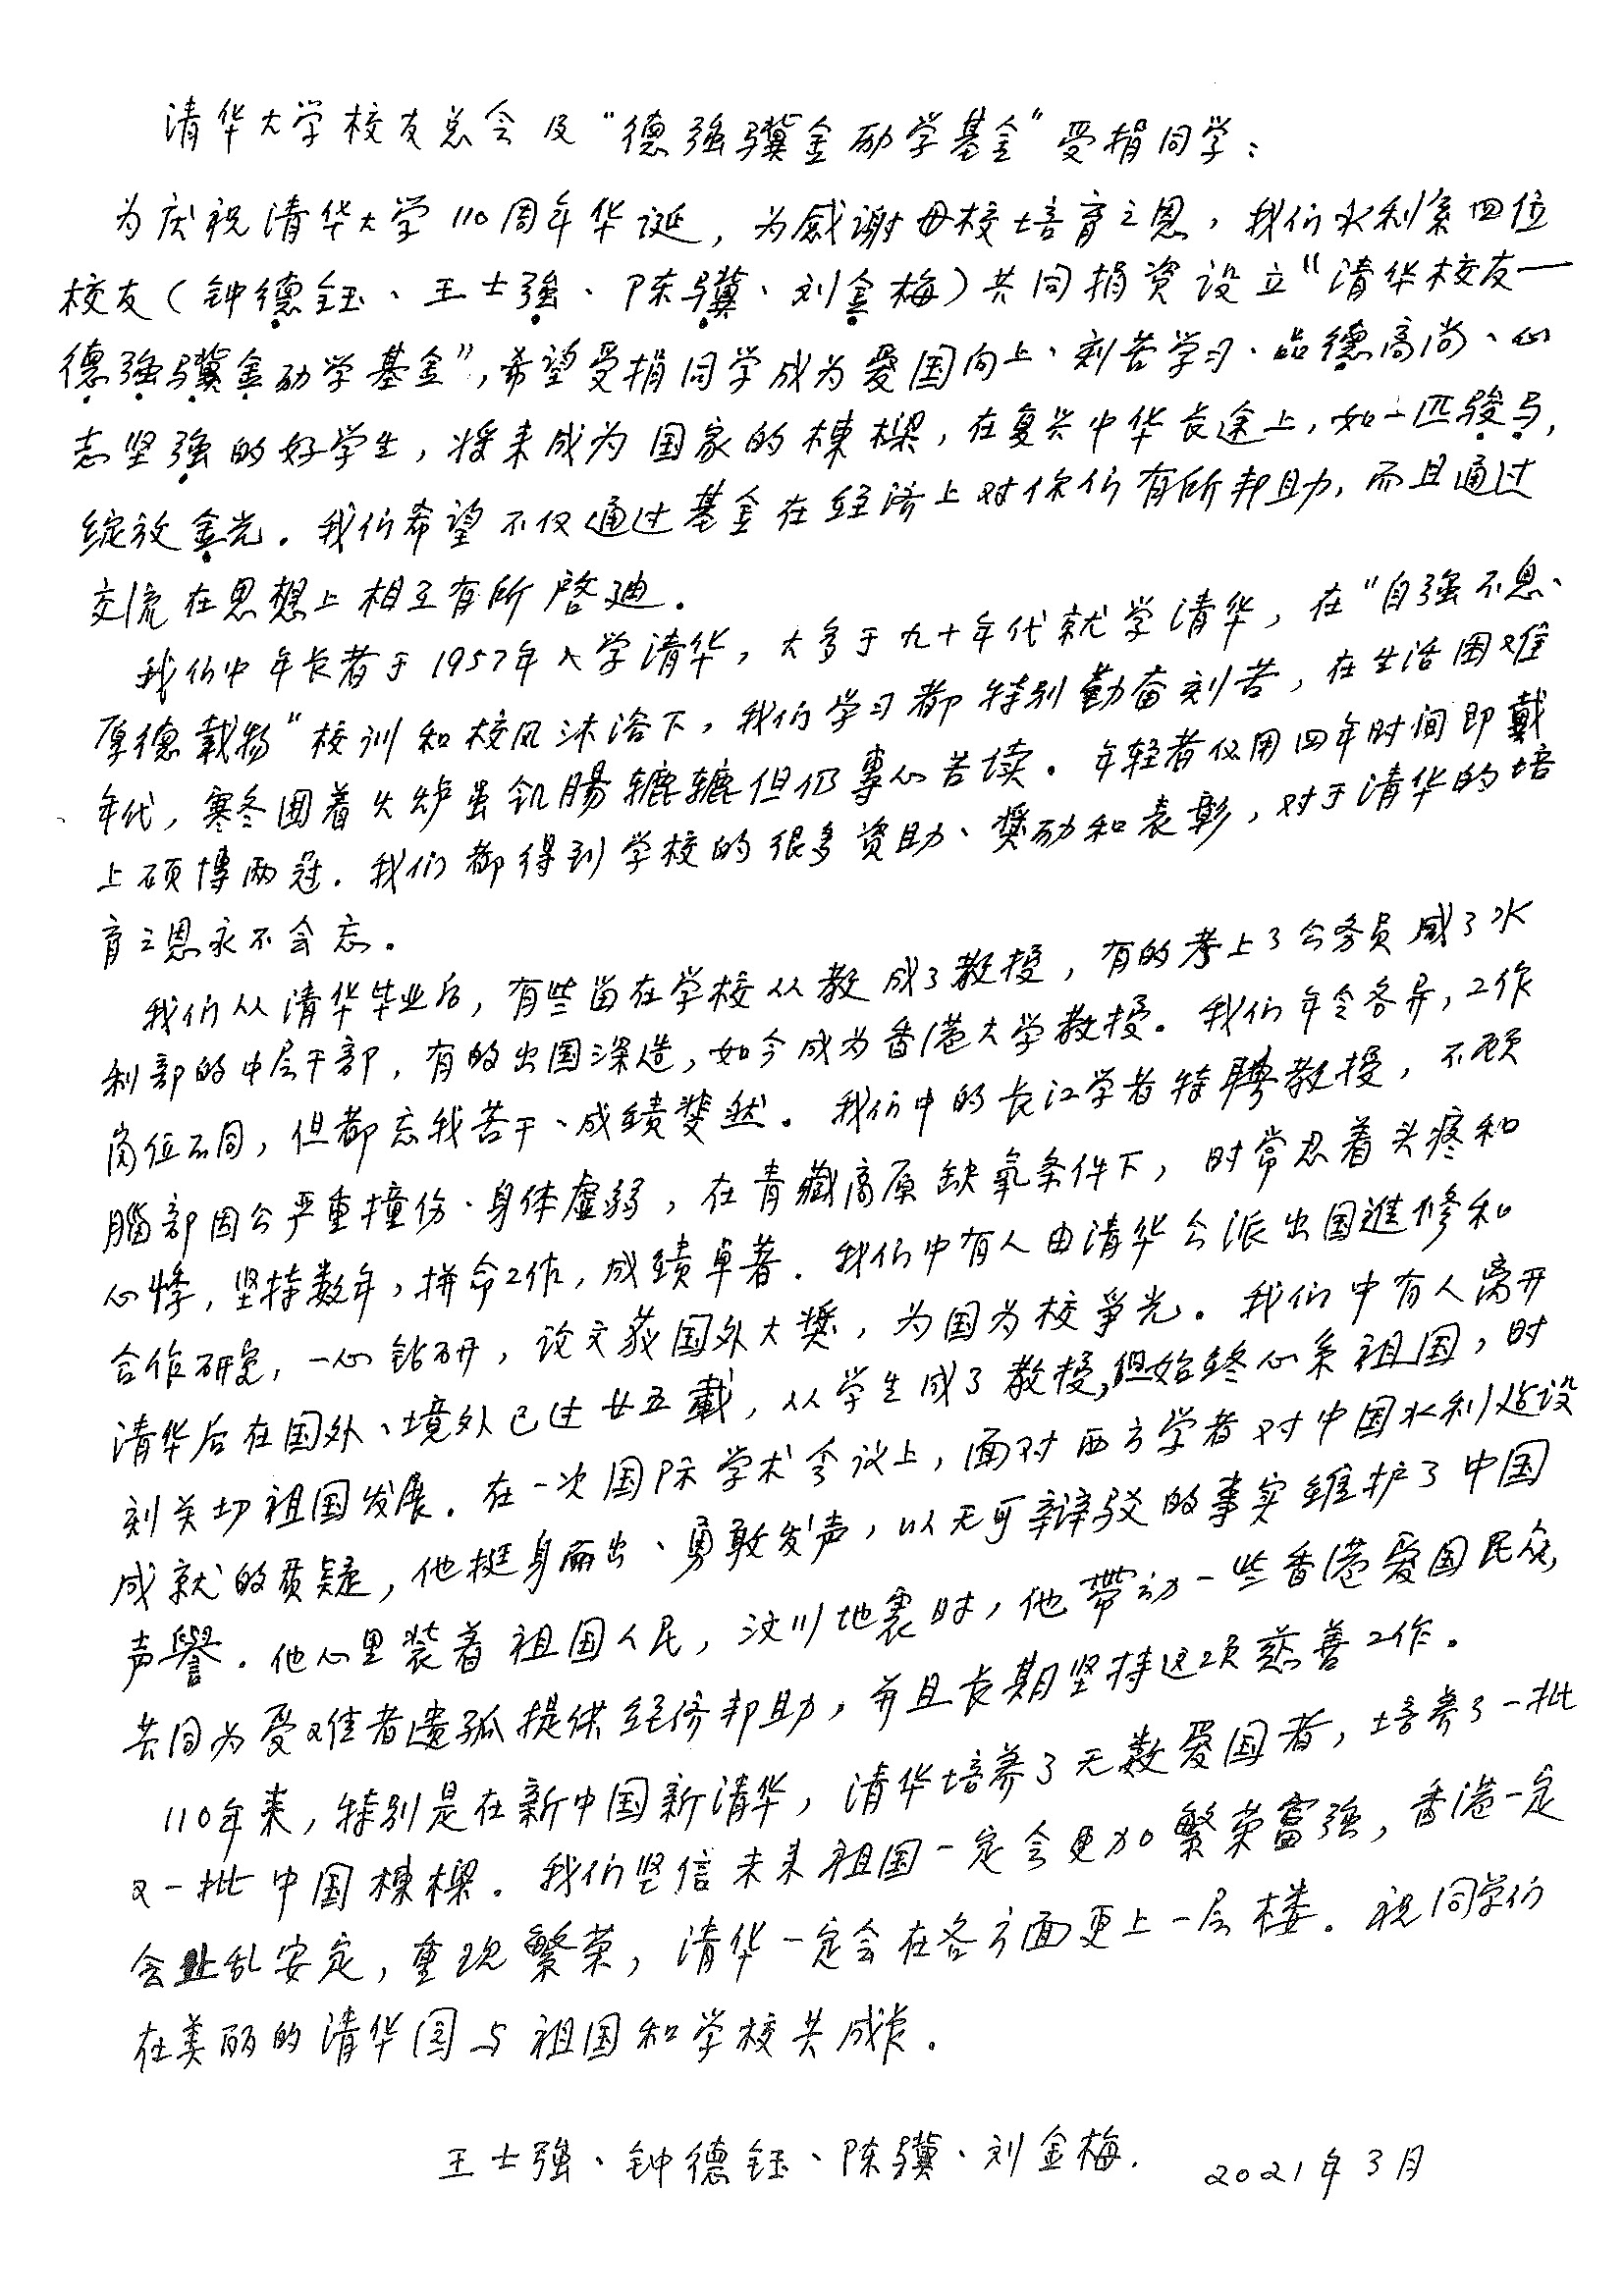 清华大学校友总会及“德强骥金励学基金”受捐同学：
为庆祝清华大学110周年华诞，为感谢母校培育之恩，我们水利系四位
校友（钟德钰、王士强、陈骥、刘金梅）共同捐资设立“清华校友—
德强骥金励学基金”，希望受捐同学成为爱国向上、刻苦学习、品德高尚、心
志坚强的好学生，将来成为国家的栋樑，在复兴中华长途上，如一匹骏马，
绽放金光。我们希望不仅通过基金在经济上对你们有所邦助，而且通过
交流在思想上相互有所啓迪。
我们中年长者于1957年入学清华，大多于九十年代就学清华，在“自强不息、
厚德载物”校训和校风沐浴下，我们学习都特别勤奋刻苦，在生活困难
年代，寒冬围着火炉虽饥腸辘辘但仍專心苦读。年轻者仅用四年时间即戴
上硕博两冠。我们都得到学校的很多资助、奬励和表彰，对于清华的培
育之恩永不会忘。
我们从清华毕业后，有些留在学校从教成了教授，有的考上了公务员成了水
利部的中层干部，有的出国深造，如今成为香港大学教授。我们年令各异，工作
岗位不同，但都忘我苦干、成绩斐然。我们中的长江学者特聘教授，不顾
腦部因公严重撞伤、身体虚弱，在青藏高原缺氧条件下，时常忍着头疼和
心悸，坚持数年，拼命工作，成绩卓著。我们中有人由清华公派出国進修和
合作研究，一心钻研，论文获国外大奬，为国为校爭光。我们中有人离开
清华后在国外、境外已过廿五載，从学生成了教授，但始终心系祖国，时
刻关切祖国发展。在一次国际学术会议上，面对西方学者对中国水利建设
成就的质疑，他挺身而出、勇敢发声，以无可辩驳的事实維护了中国
声譽。他心里装着祖国人民，汶川地震时，他带动一些香港爱国民众，
共同为受难者遗孤提供经济邦助，并且长期坚持这项慈善工作。
110年来，特别是在新中国新清华，清华培养了无数爱国者，培养了一批
又一批中国棟樑。我们坚信未来祖国一定会更加繁荣富强，香港一定
会止乱安定，重现繁荣，清华一定会在各方面更上一层楼。祝同学们
在美丽的清华园与祖国和学校共成长。
王士强、钟德钰、陈骥、刘金梅． 2021年3月